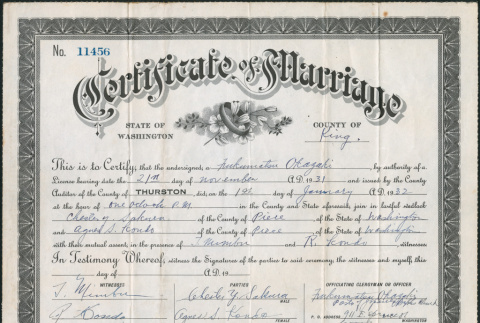 No. 11456
Certificate of Marriage
STATE OF WASHINGTON
COUNTY OF King.
This is to Certify, that the undersigned, a Fukumatsu Okazaki by authority of a
License bearing date the 21st day of november A.D. 1931 and issued by the County
Auditor of the County of THURSTON did, on the 1st day of January A.D. 1932
at the hour of one oclock P.M in the County and State aforesaid, join in lawful wedlock
Chester Y. Sakura of the County of Pierce of the State of Washington
and Agnes S. Kondo of the County of Pierce of the State of Washington
with their mutual assent, in the presence of and R. Kondo witnesses
In Testimony Whereof, witness the Signatures of the parties to said ceremony, the witnesses and myself, this
day of A.D. 19
WITNESSES PARTIES OFFICIATING CLERGYMAN OR
Chester Y. Sakura MALE Fukumatsu Okazaki
Agnes S. Kondo FEMALE P. O. ADDRESS
WASHINGTON